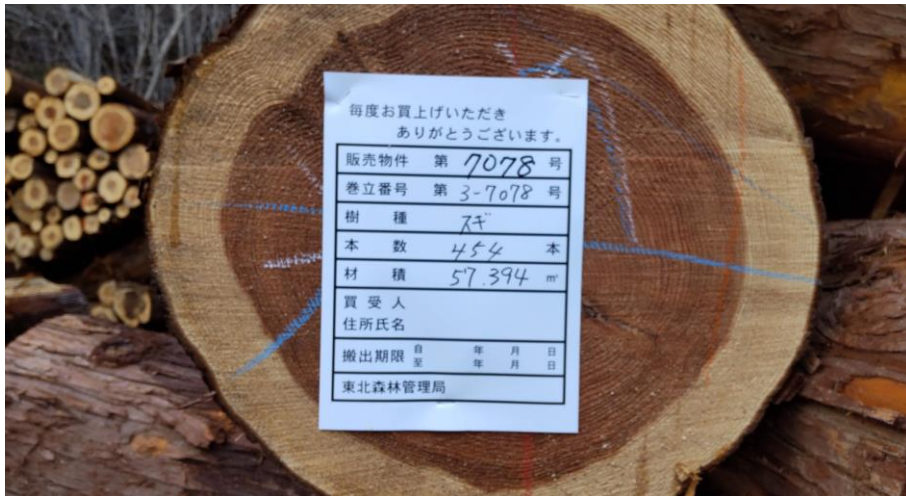 毎度お買上げいただき
ありがとうございます。
販売物件 第 7078 号
巻立番号 第 3-7078 号
樹種 スギ
本数 454 本
材積 57.394 m³
買受人
住所氏名
搬出期限 自 年 月 日
至 年 月 日
東北森林管理局